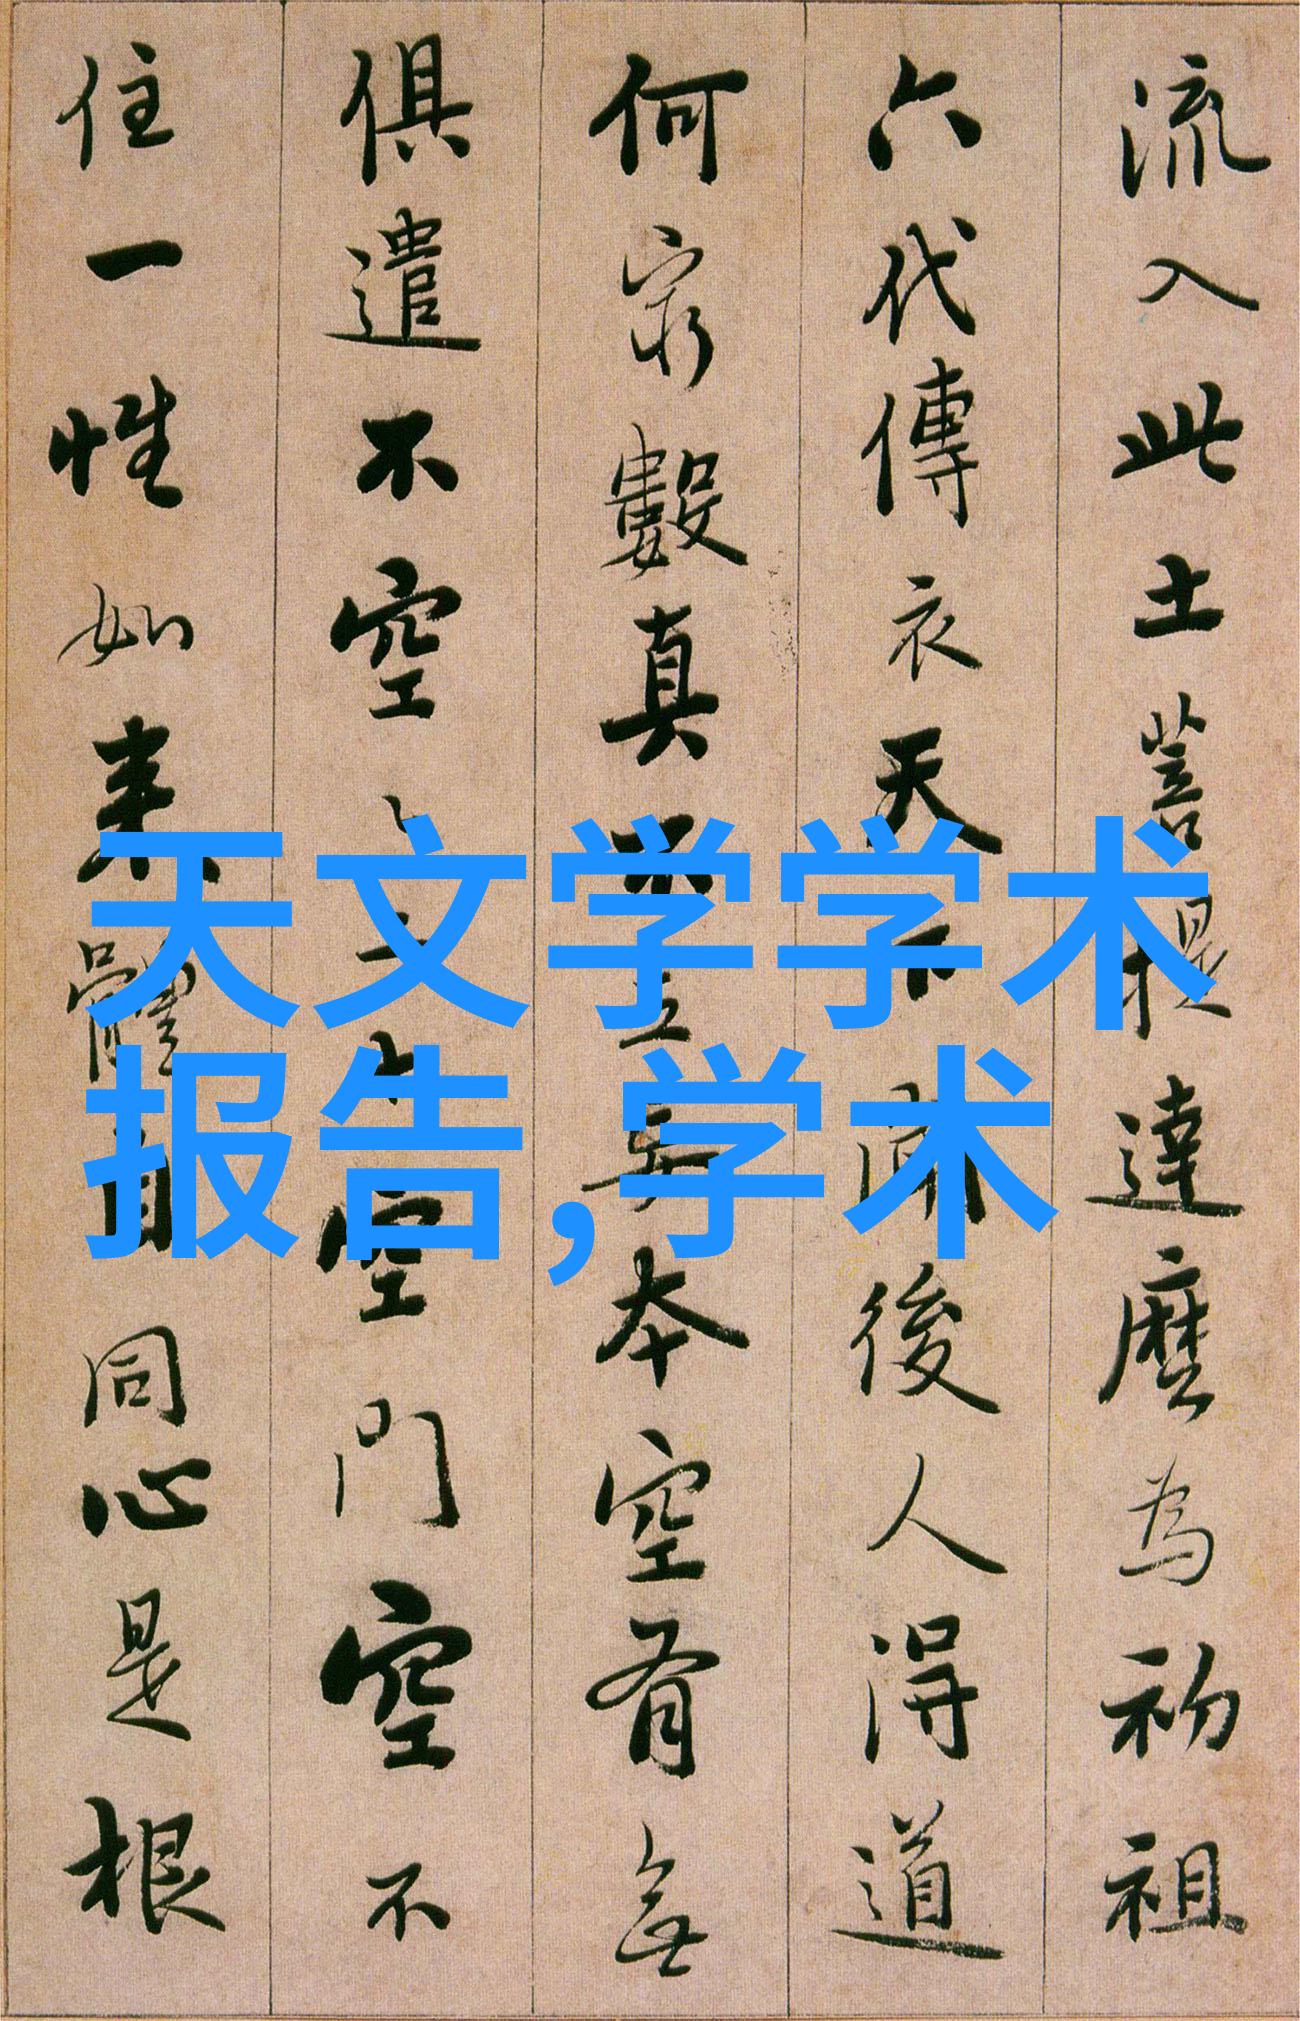 流入此土菩提達麼為初祖
六代傳衣天下聞後人得道
何窮數真不立妄本空有無
俱遣不空〻二十空門空不
住一性如來體自同心是根
天文学学术
报告,学术